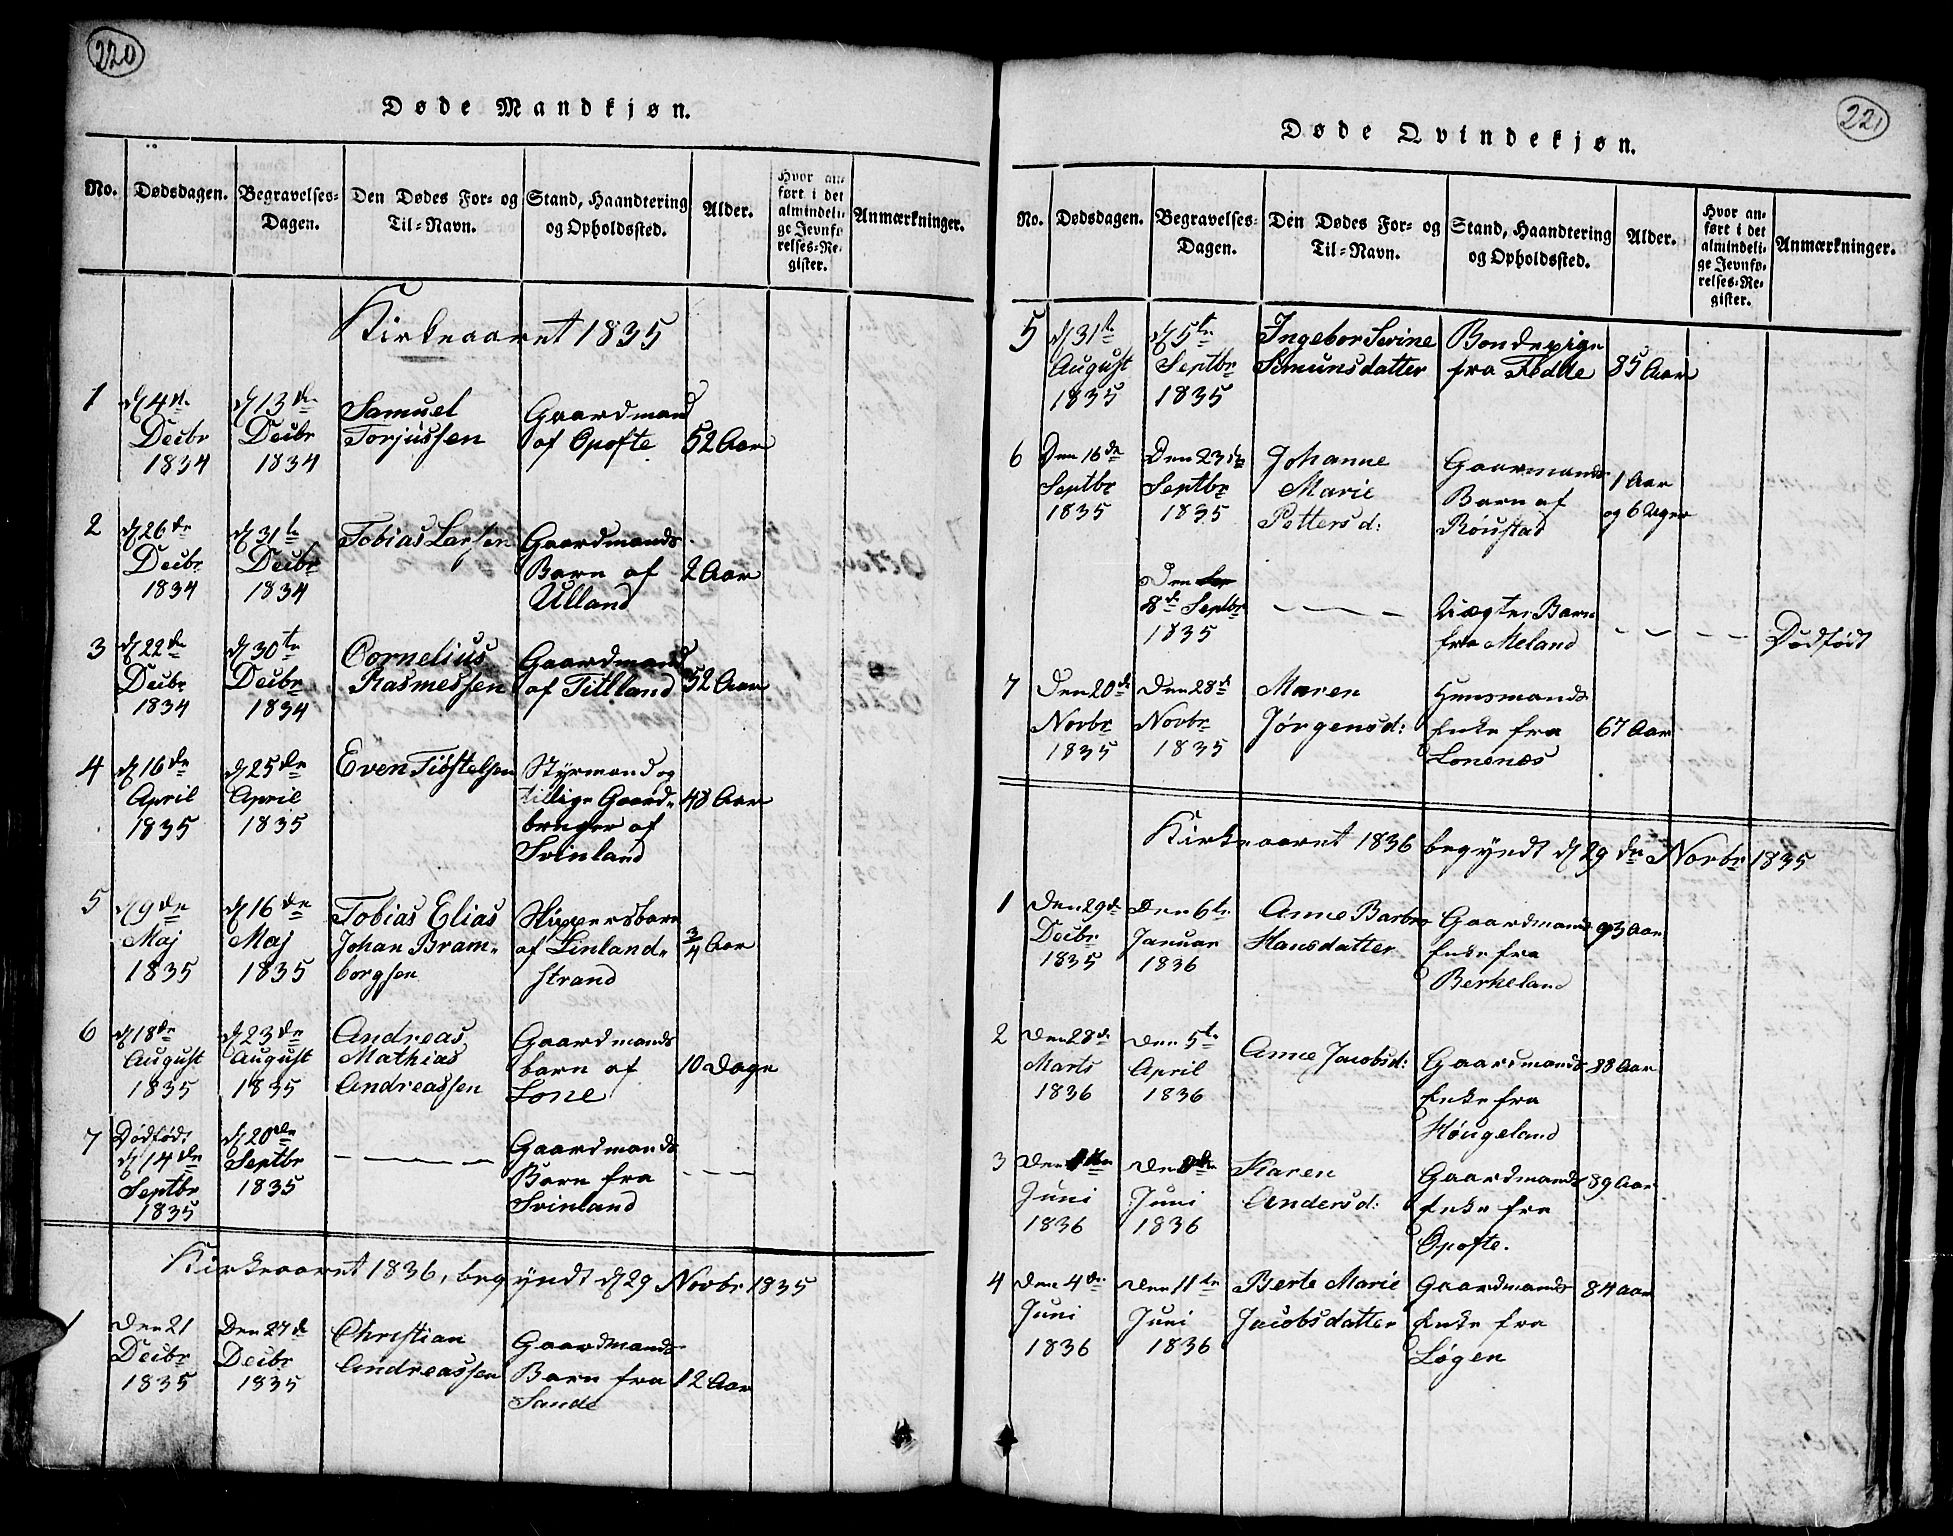 220
Døde Mandkjøn.
No. Dødsdagen. Begravelses-Dagen. Den Dødes For- og Til-Navn. Stand, Haandtering og Opholdssted. Alder. Hvor anført i det almindelige Jevnførelses-Register. Anmærkninger.
Kirkeaaret 1835
1 d 4de Decbr 1834 d 13de Decbr 1834 Samuel Torjussen Gaardmand af Opofte 52 Aar
2 d 26de Decbr 1834 d 31te Decbr 1834 Tobias Larsen Gaardmands Barn af Ulland 2 Aar
3 d 22de Decbr 1834 d 30te Decbr 1834 Cornelius Rasmessen Gaardmand af Titlland 52 Aar
4 d 16de April 1835 d 25de April 1835 Even Tibstelsen Styrmand og tillige Gaardbruger af Svinland 48 Aar
5 d 9de Maj 1835 d 16de Maj 1835 Tobias Elias Johan Bramborgsen Skippersbarn af Linlandstrand 3/4 Aar
6 d 18de August 1835 d 23de August 1835 Andreas Mathias Andreassen Gaardmands barn af Lone 10 Dage
7 Dødfødt d 14de Septbr 1835 d 20de Septbr 1835 — — — Gaardmands Barn fra Svinland — — —
Kirkeaaret 1836, begyndt d 29 Novbr 1835
1 Den 21 Decbr 1835 Den 27d Decbr 1835 Christian Andreassen Gaardmands Barn fra Sande 12 Aar
221
Døde Qvindekjøn.
No. Dødsdagen. Begravelses-Dagen. Den Dødes For- og Til-Navn. Stand, Haandtering og Opholdssted. Alder. Hvor anført i det almindelige Jevnførelses-Register. Anmærkninger.
5 d 31te August 1835 d 5te Septbr 1835 Ingebor Serine Simunsdatter Bondepige fra Fedde 85 Aar
6 Den 16de Septbr 1835 Den 23de Septbr 1835 Johanne Marie Pettersd: Gaarmands Barn af Röustad 1 Aar og 6 Uger
Den 8de Septbr 1835 — — — Uægte Barn fra Meland — — — — Dödfödt
7 Den 20d Novbr 1835 Den 28d Novbr 1835 Maren Jørgensd: Huusmands Enke fra Lonenæs 67 Aar
Kirkeaaret 1836 begyndt d 29de Novbr 1835
1 Den 29d Decbr 1835 Den 6te Januar 1836 Anne Barbro Hansdatter Gaardmands Enke fra Berkeland 93 Aar
2 Den 28d Marts 1836 Den 5te April 1836 Anne Jacobsd: Gaardmands Enke fra Höugeland 88 Aar
3 Den Juni 1836 Den Juni 1836 Karen Andersd: Gaardmands Enke fra Opofte. 89 Aar
4 Den 4de Juni 1836 Den 11te Juni 1836 Berte Marie Jacobsdatter Gaardmands Enke fra Løgen 84 Aar